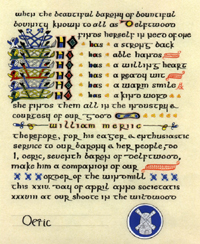 when the beautiful barony of bountiful
bounity known to all as Oelftwood
finds herself in need of one
who has a strong back
who has able hands
who has a willing heart
who has a ready wit
who has a warm smile
who has a kind word
she finds them all in the industrie &
courtesy of our good
william merlic
Therefore, for his eager & enthusiastic
service to our barony & her people, do
I, oeric, seventh baron of delftwood,
make him a companion of our
order of the windmill
this xxiii day of april anno societatis
xxxviii at our shoote in the wildwood
Oeric